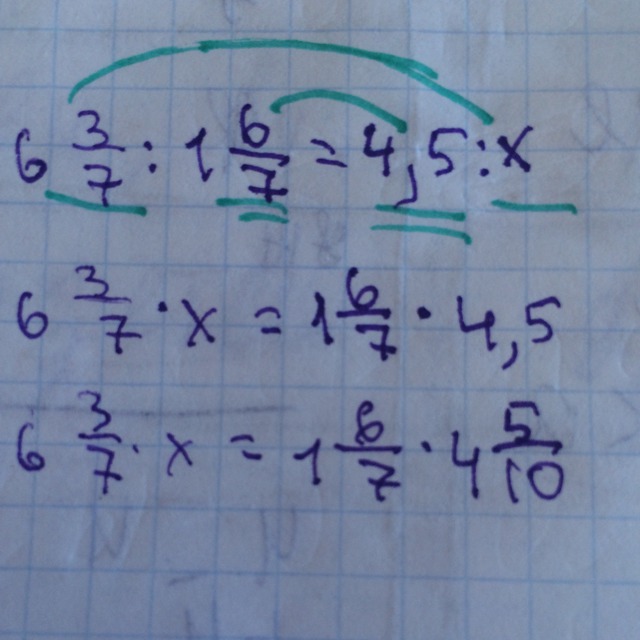 6 3/7 : 1 6/7 = 4,5 : x
6 3/7 · x = 1 6/7 · 4,5
6 3/7 · x = 1 6/7 · 4 5/10